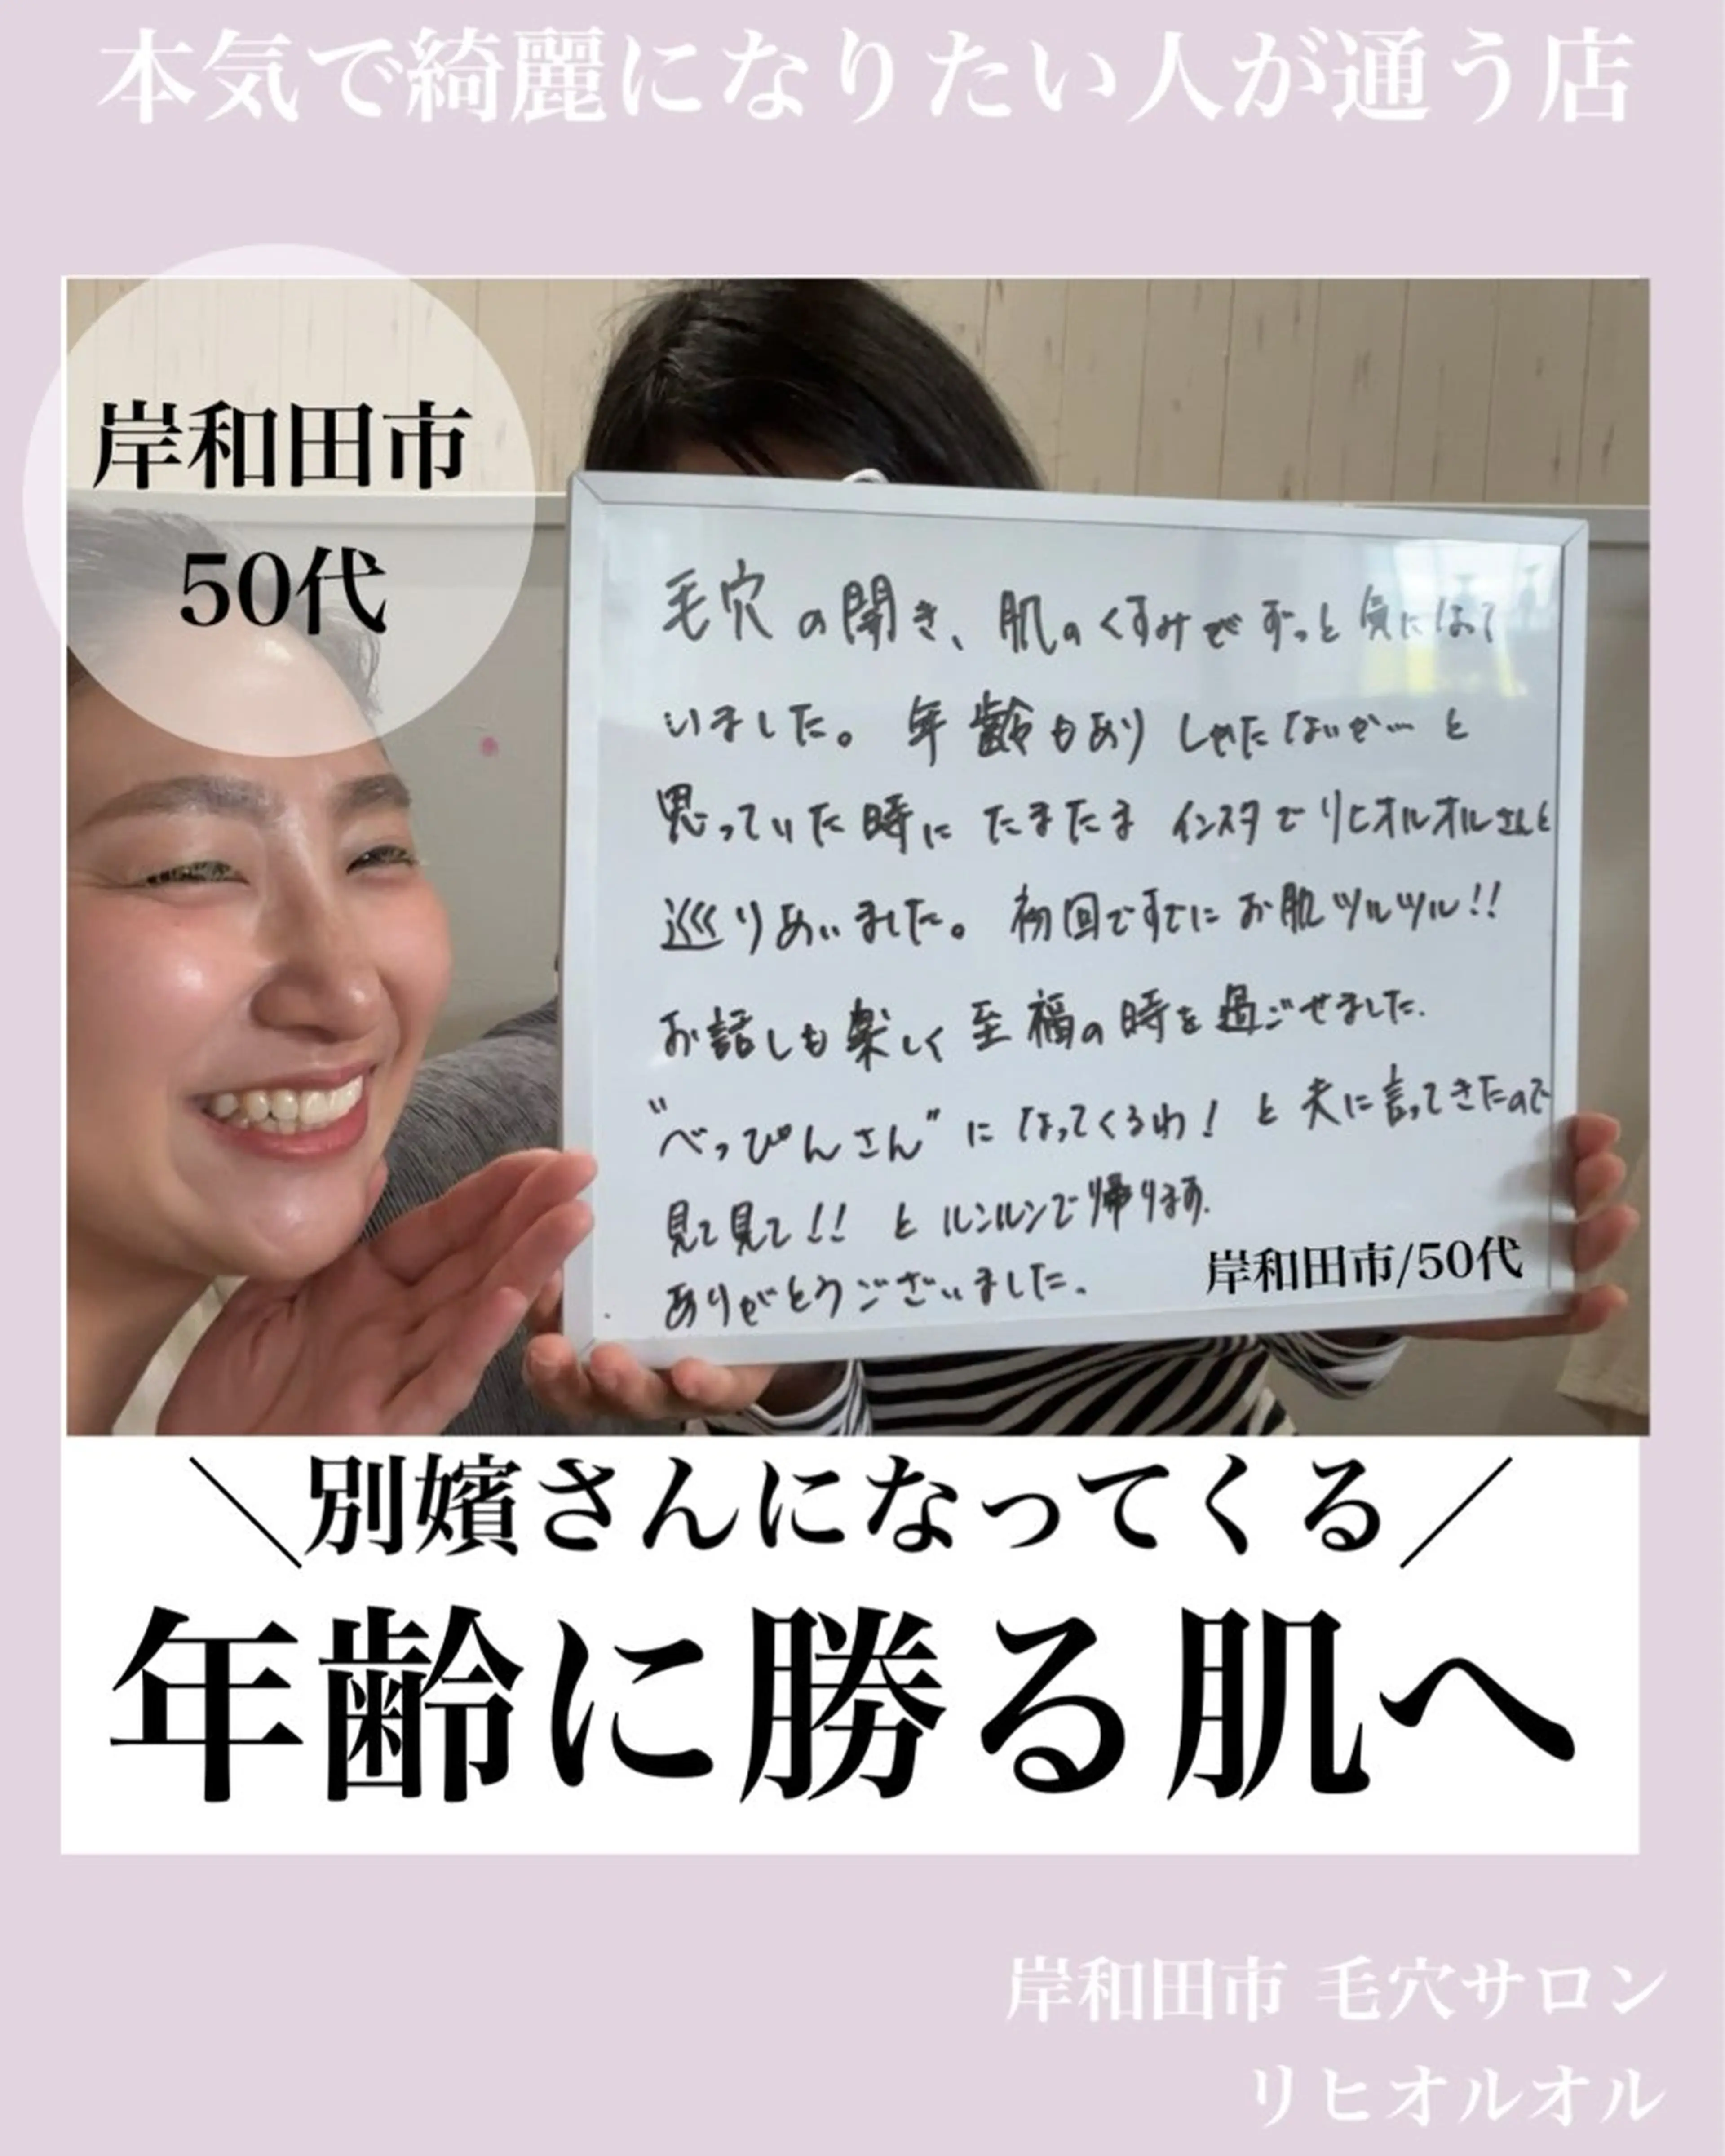 本気で綺麗になりたい人が通う店
岸和田市
50代
毛穴の開き、肌のくすみでずっと気になって
いました。年齢もありしかたないか…と
思っていた時にたまたまインスタでリヒオルオルさんと
巡りあいました。初回ですでにお肌ツルツル!!
お話しも楽しく至福の時を過ごせました.
"べっぴんさん"になってくるわ!と夫に言ってきたので
見て見て!!とルンルンで帰ります.
ありがとうございました.
岸和田市/50代
\別嬪さんになってくる/
年齢に勝る肌へ
岸和田市 毛穴サロン
リヒオルオル